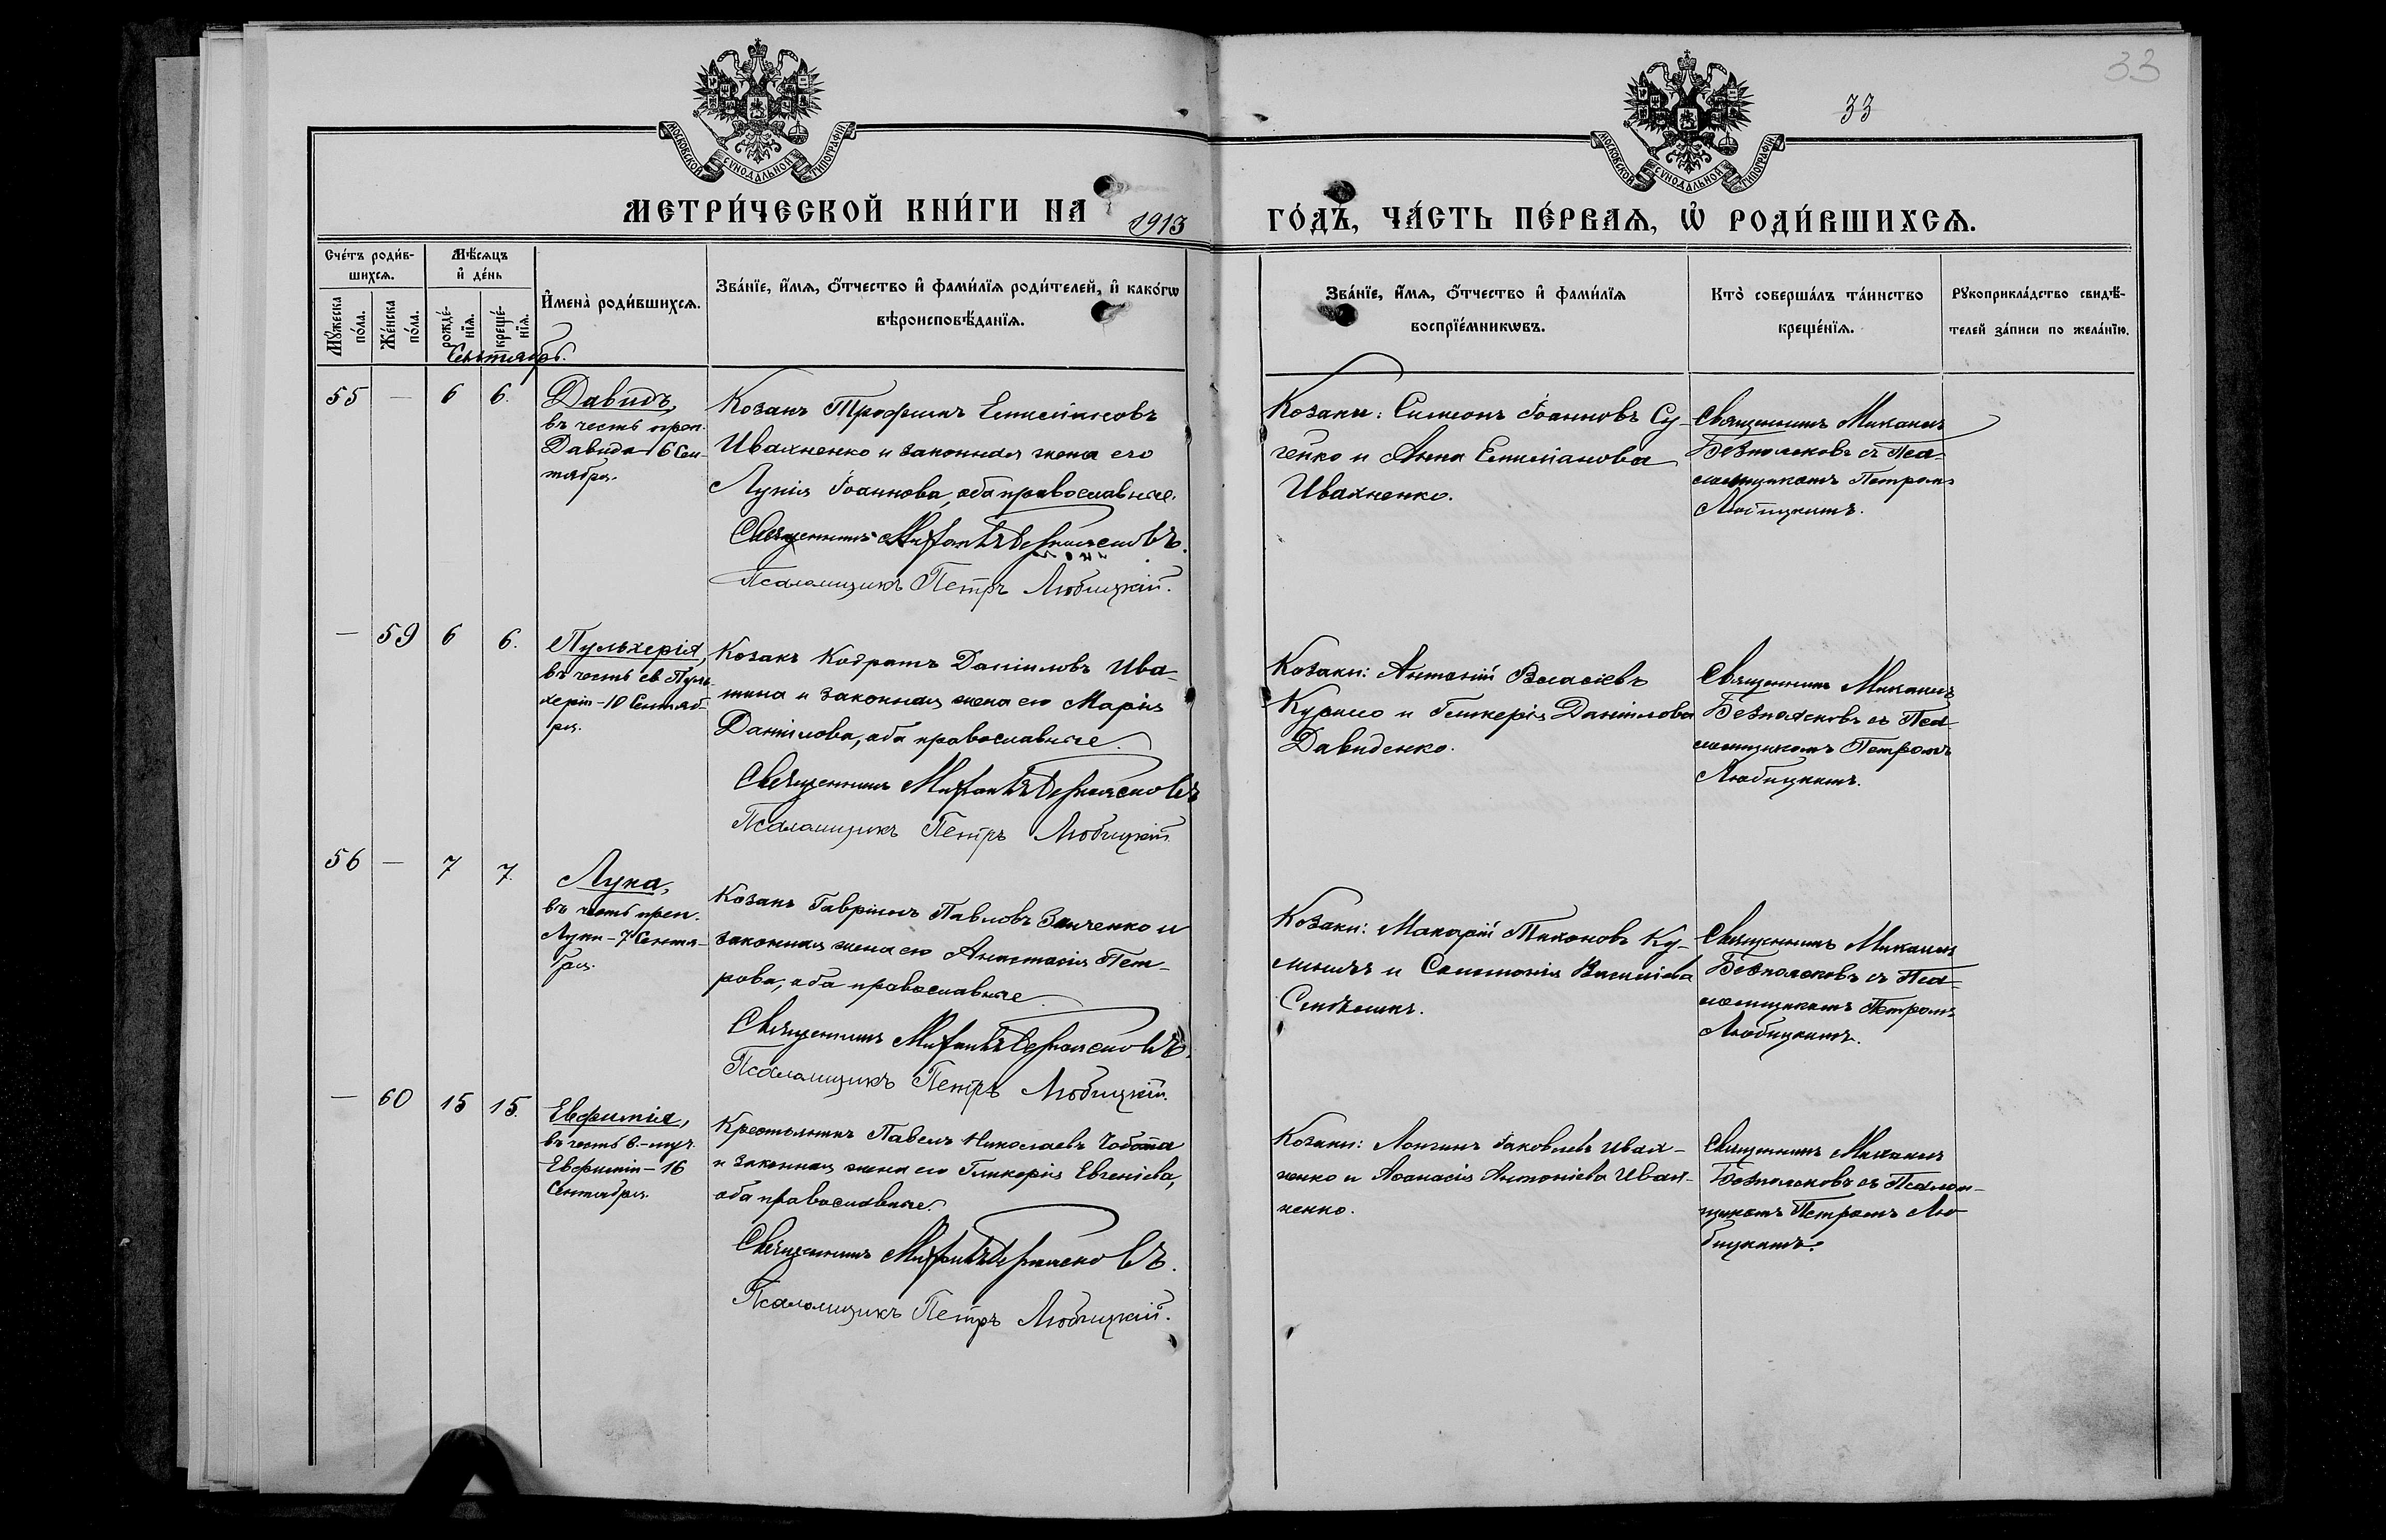 33
33
МОСКОВСКОЙ СѴНОДАЛЬНОЙ ТИПОГРАФІИ
МОСКОВСКОЙ СѴНОДАЛЬНОЙ ТИПОГРАФІИ
МЕТРИ́ЧЕСКОЙ КНИ́ГИ НА 1913 ГО́ДЪ, ЧА́СТЬ ПЕ́РВАѦ, Ѡ҆ РОДИ́ВШИХСѦ.
Сче́тъ роди́в-
шихсѧ.
Мѣ́сѧцъ
и҆ де́нь
И҆мена̀ роди́вшихсѧ.
Зва́нїе, и҆́мѧ, ѻ҆́тчество и҆ фами́лїѧ роди́телей, и҆ како́гѡ
вѣроисповѣ́данїѧ.
Мꙋ́жеска
по́ла.
Же́нска
по́ла.
рожде́-
нїѧ.
креще́-
нїѧ.
Зва́нїе, и҆́мѧ, ѻ҆́тчество и҆ фами́лїѧ
воспрїе́мникѡвъ.
Кто̀ соверша́лъ та́инство
креще́нїѧ.
Рꙋкоприкла́дство свидѣ́-
телей за́писи по жела́нїю.
Сентябрь.
55 — 6 6.
Давидъ,
въ честь преп.
Давида 6 Сен-
тября.
Козакъ Трофимъ Емиліановъ
Ивахненко и законная жена его
Лукія Іоаннова, оба православные.
Священникъ Михаилъ Безпоясковъ.
Псаломщикъ Петръ Любицкій.
Козаки: Симеонъ Іоанновъ Су-
ченко и Анна Емиліанова
Ивахненко.
Священникъ Михаилъ
Безпоясковъ съ Пса-
ломщикомъ Петромъ
Любицкимъ.
— 59 6 6.
Пульхерія,
въ честь св. Пуль-
херіи - 10 Сентяб-
ря.
Козакъ Кодратъ Даніиловъ Ива-
шина и законная жена его Марія
Даніилова, оба православные.
Священникъ Михаилъ Безпоясковъ
Псаломщикъ Петръ Любицкій.
Козаки: Антоній Власіевъ
Курило и Гликерія Даніилова
Давиденко.
Священникъ Михаилъ
Безпоясковъ съ Пса-
ломщикомъ Петромъ
Любицкимъ.
56 — 7 7.
Лука,
въ честь преп.
Луки - 7 Сентя-
бря.
Козакъ Гавріилъ Павловъ Заиченко и
законная жена его Анастасія Пет-
рова, оба православные
Священникъ Михаилъ Безпоясковъ.
Псаломщикъ Петръ Любицкій.
Козаки: Макарій Тихоновъ Ку-
и Соломонія Василіева
Священникъ Михаилъ
Безпоясковъ съ Пса-
ломщикомъ Петромъ
Любицкимъ.
— 60 15 15.
Евфимія,
въ честь в.-муч.
Евфиміи - 16
Сентября.
Крестьянинъ Павелъ Николаевъ Чобота
и законная жена его Гликерія Евгеніева,
оба православные.
Священникъ Михаилъ Безпоясковъ.
Псаломщикъ Петръ Любицкій.
Козаки: Лонгинъ Іаковлевъ Ивах-
ненко и Аѳанасія Антоніева Ивах-
ненко.
Священникъ Михаилъ
Безпоясковъ съ Псалом-
щикомъ Петромъ Лю-
бицкимъ.